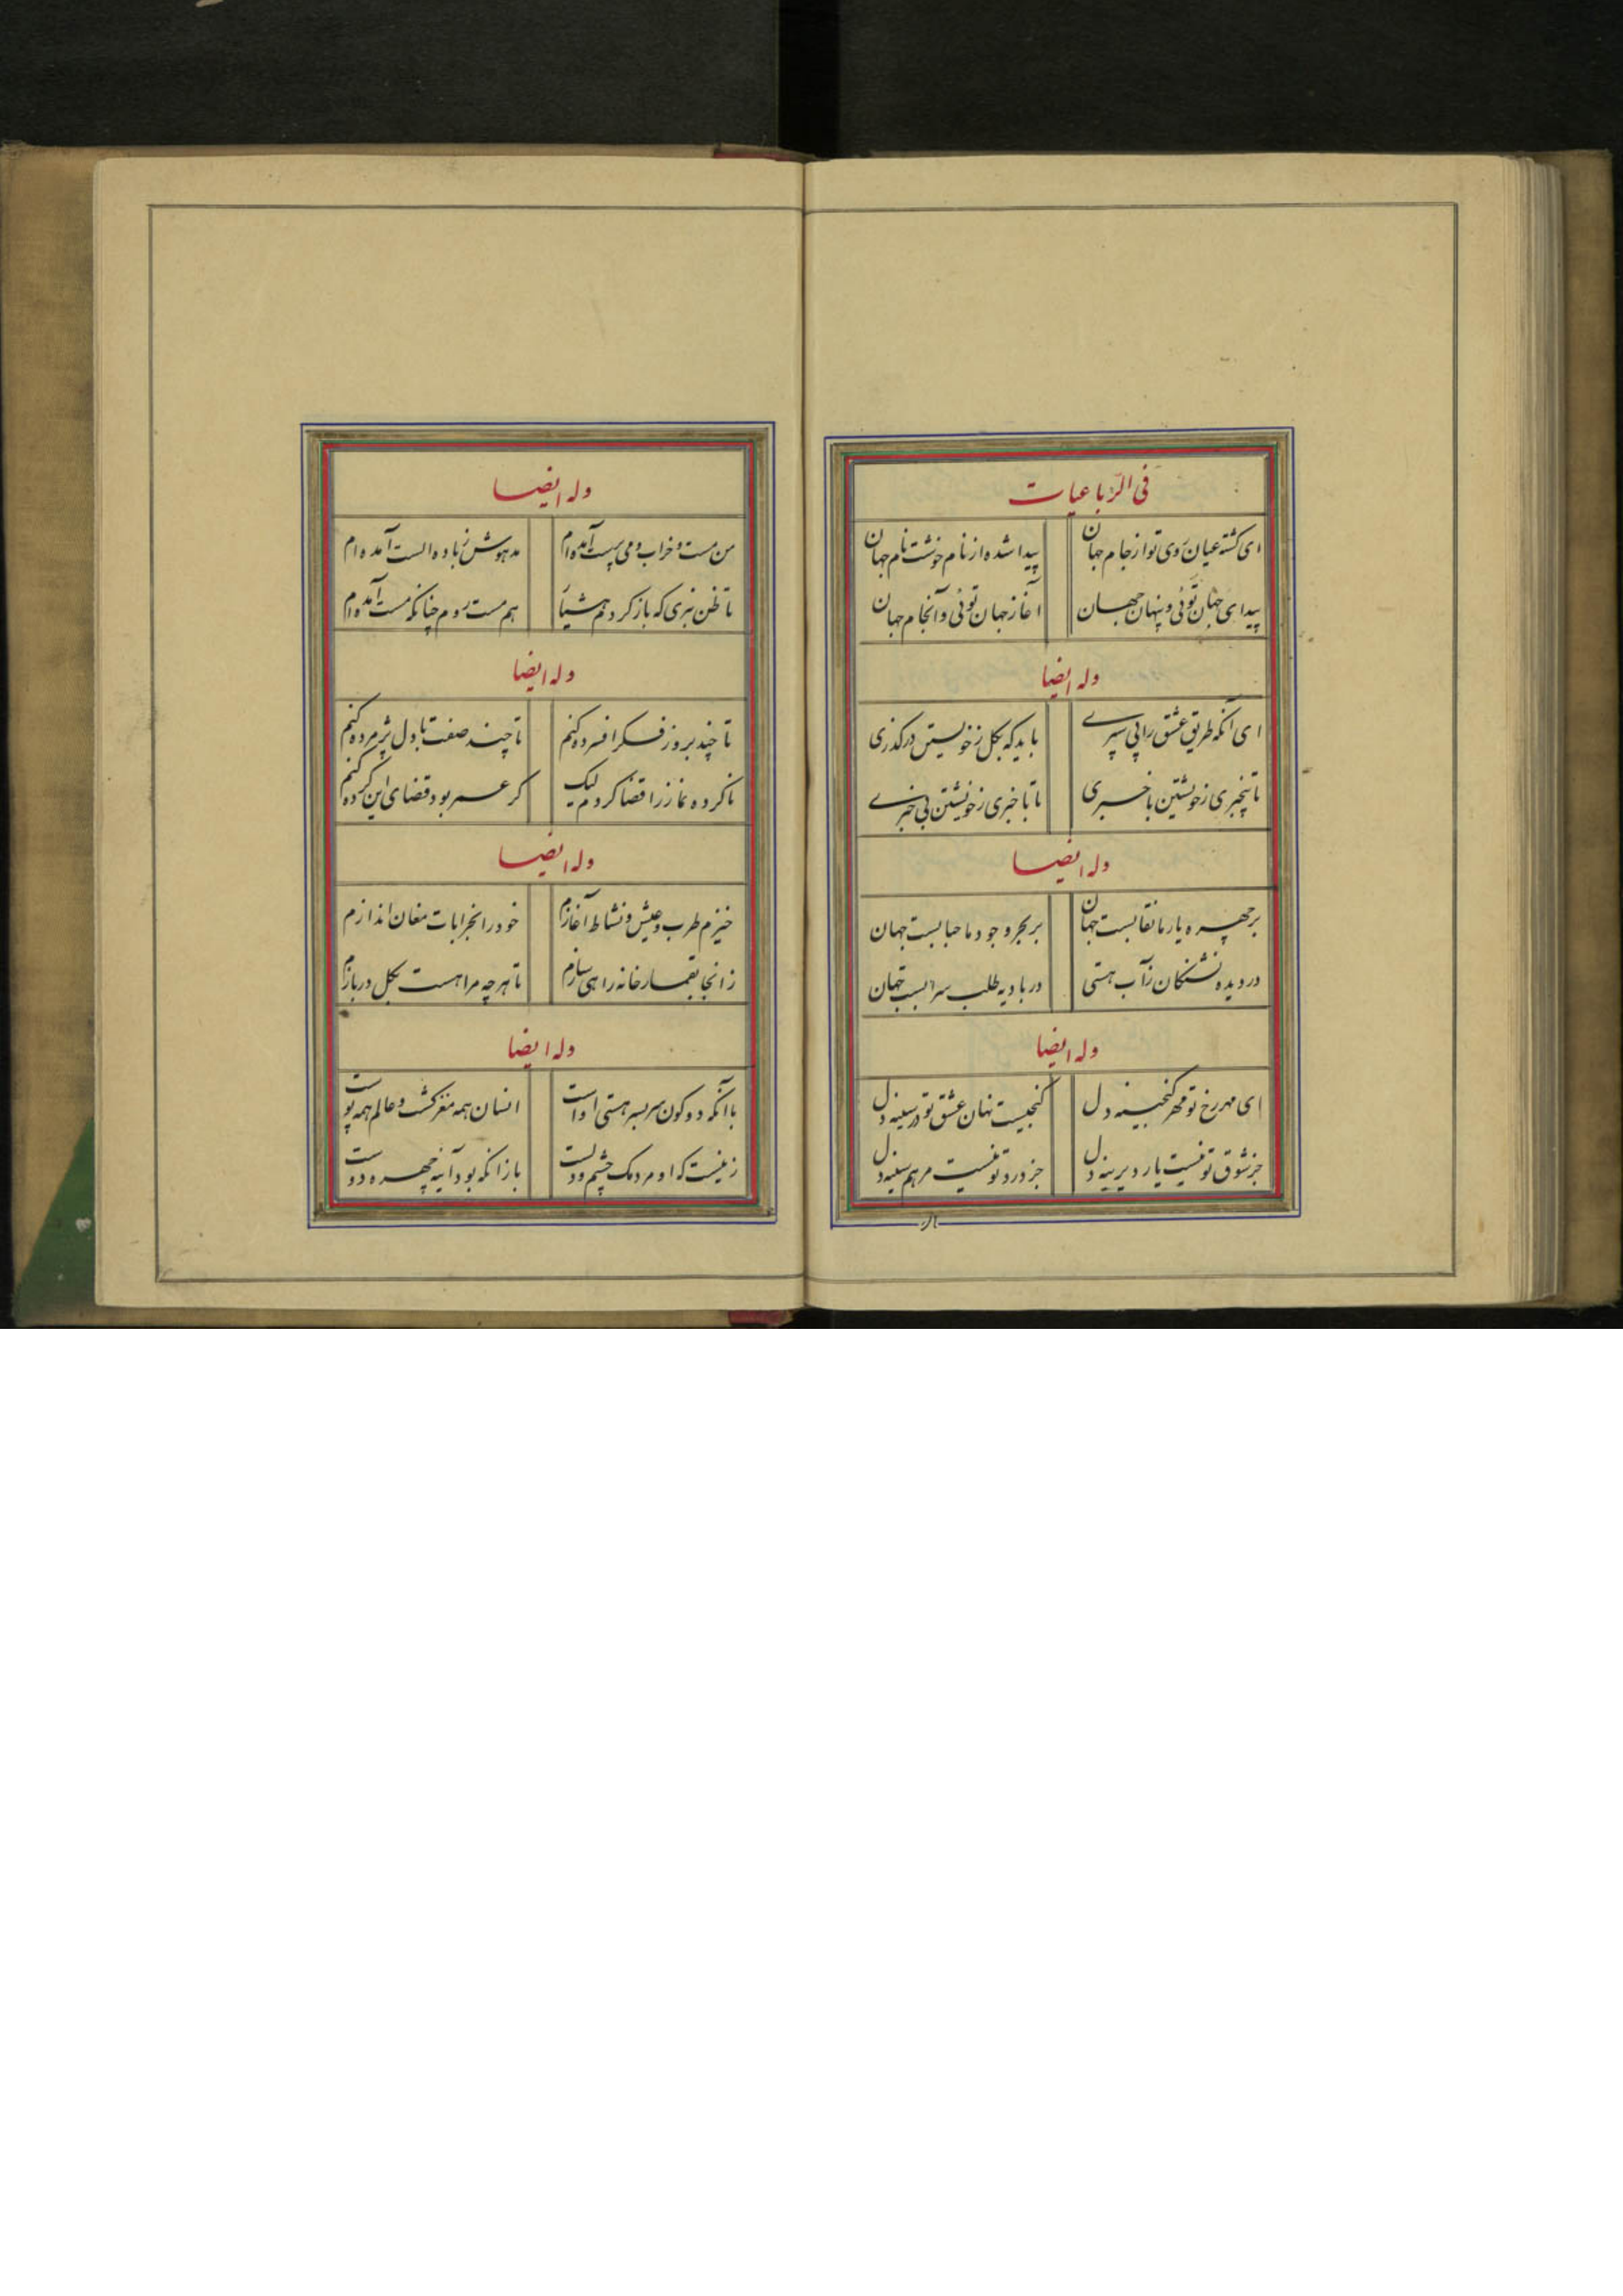 فی الرباعیات
ای کشته عیان روی تو از جام جهان پیدا شده از نام خوشت نام جهان
پیدای جهان توئی و پنهان جهان آغاز جهان توئی و آنجام جهان
وله ایضا
ای آنکه طریق عشق را پی سپری باید که بکل ز خویشتن در کذری
تا بیخبری ز خویشتن با خبری تا با خبری ز خویشتن بی خبری
وله ایضا
بر چهره یار ما نقابست جهان بر بحر وجود ما حبابست جهان
در دیده تشنکان ز آب هستی در بادیه طلب سرابست جهان
وله ایضا
ای مهر رخ تو مهر کنجینه دل کنجیست نهان عشق تو در سینه دل
جز شوق تو نیست یار دیرینه دل جز درد تو نیست مرهم سینه دل
وله ایضا
من مست و خراب و می پرست آمده ام مدهوش ز باده الست آمده ام
تا ظن نبری که باز کردم هشیار هم مست روم چنانکه مست آمده ام
وله ایضا
تا چند بروز فکر افسرده کنم تا چند صفت با دل پژمرده کنم
ناکرده نماز را قضا کردم لیک کر عمر بود قضای این کرده کنم
وله ایضا
خیزم طرب و عیش و نشاط آغازم خود را بخرابات مغان اندازم
زانجا بقمارخانه راهی سازم تا هر چه مرا هست بکل دربازم
وله ایضا
با آنکه دو کون سر بسر هستی اوست انسان همه مغز کشت و عالم همه پوست
زینست که او مردمک چشم ولست باز آنکه بود آینه چهره دوست